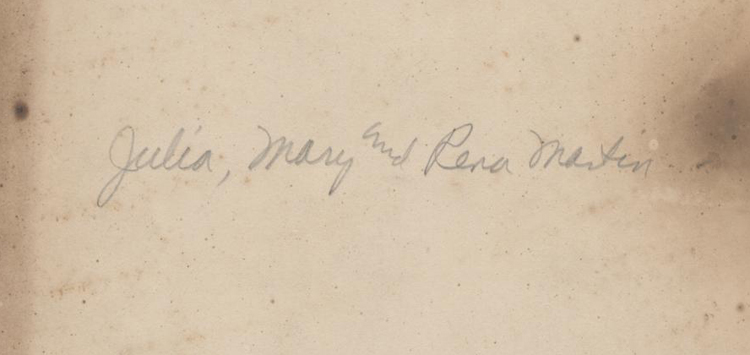 Julia, Mary and Rena Martin